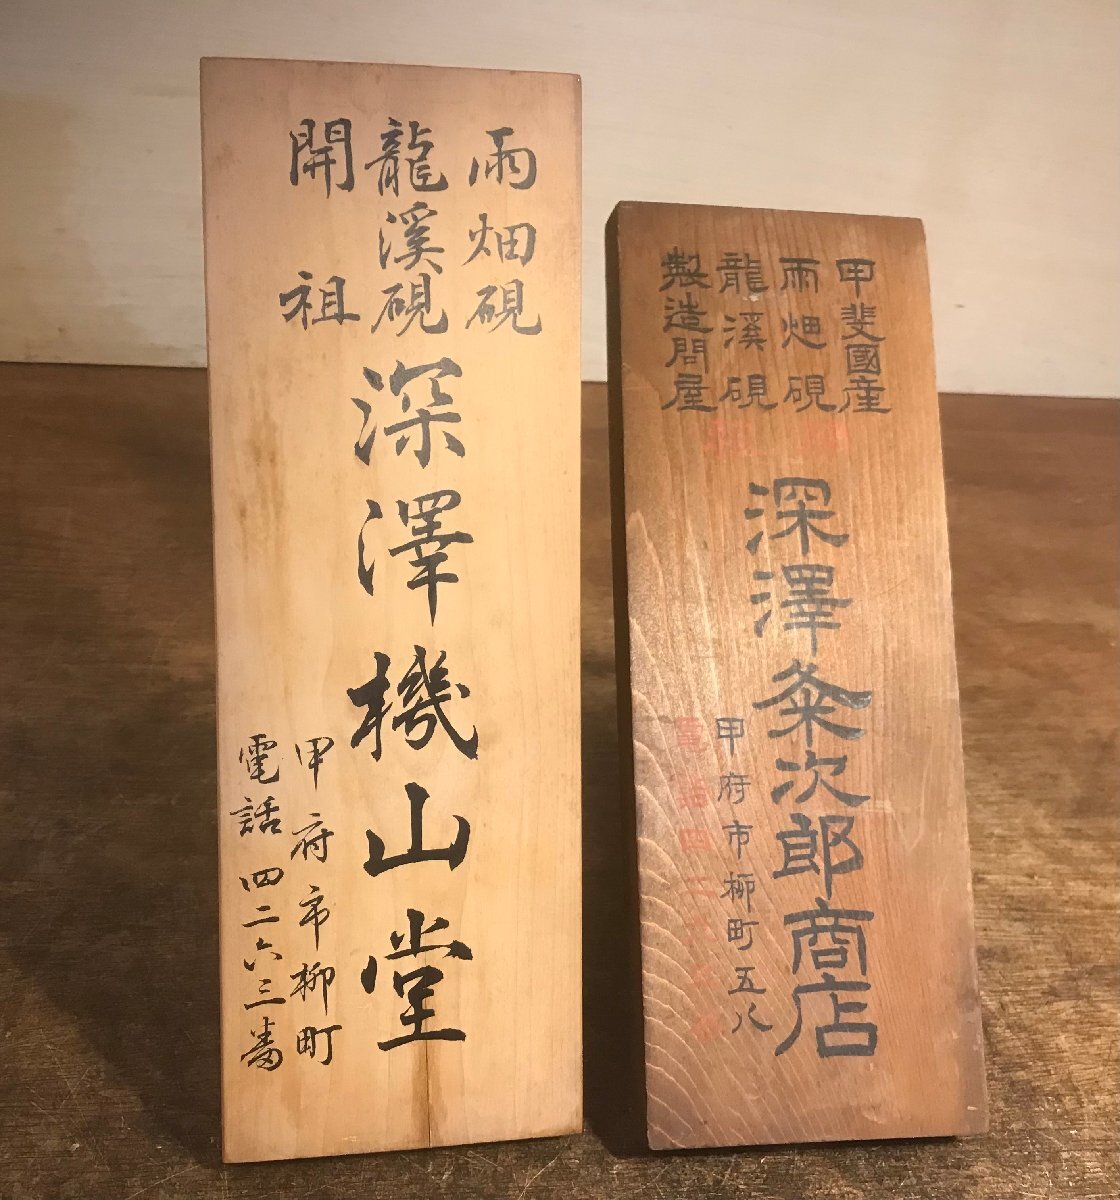 雨畑硯
龍溪硯
開祖
深澤機山堂
甲府市柳町
電話四二六三番
甲斐國産
雨畑硯
龍溪硯
製造問屋
深澤粂次郎商店
甲府市柳町五八
電話四二六三番